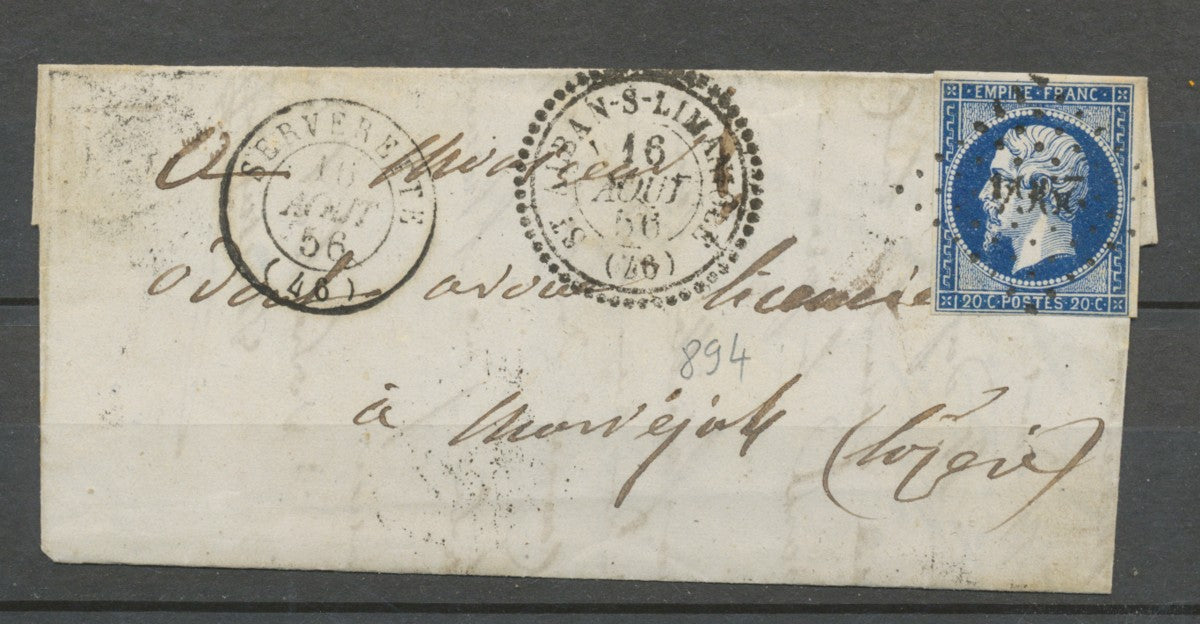 SERVERETTE
16
AOUT
56
(46)
ST ALBAN-S-LIMAGNOLE
16
AOUT
56
(46)
EMPIRE · FRANC ·
20 C · POSTES · 20 C ·
A Monsieur
avoué licencié
894
à Marvéjols (Lozère)